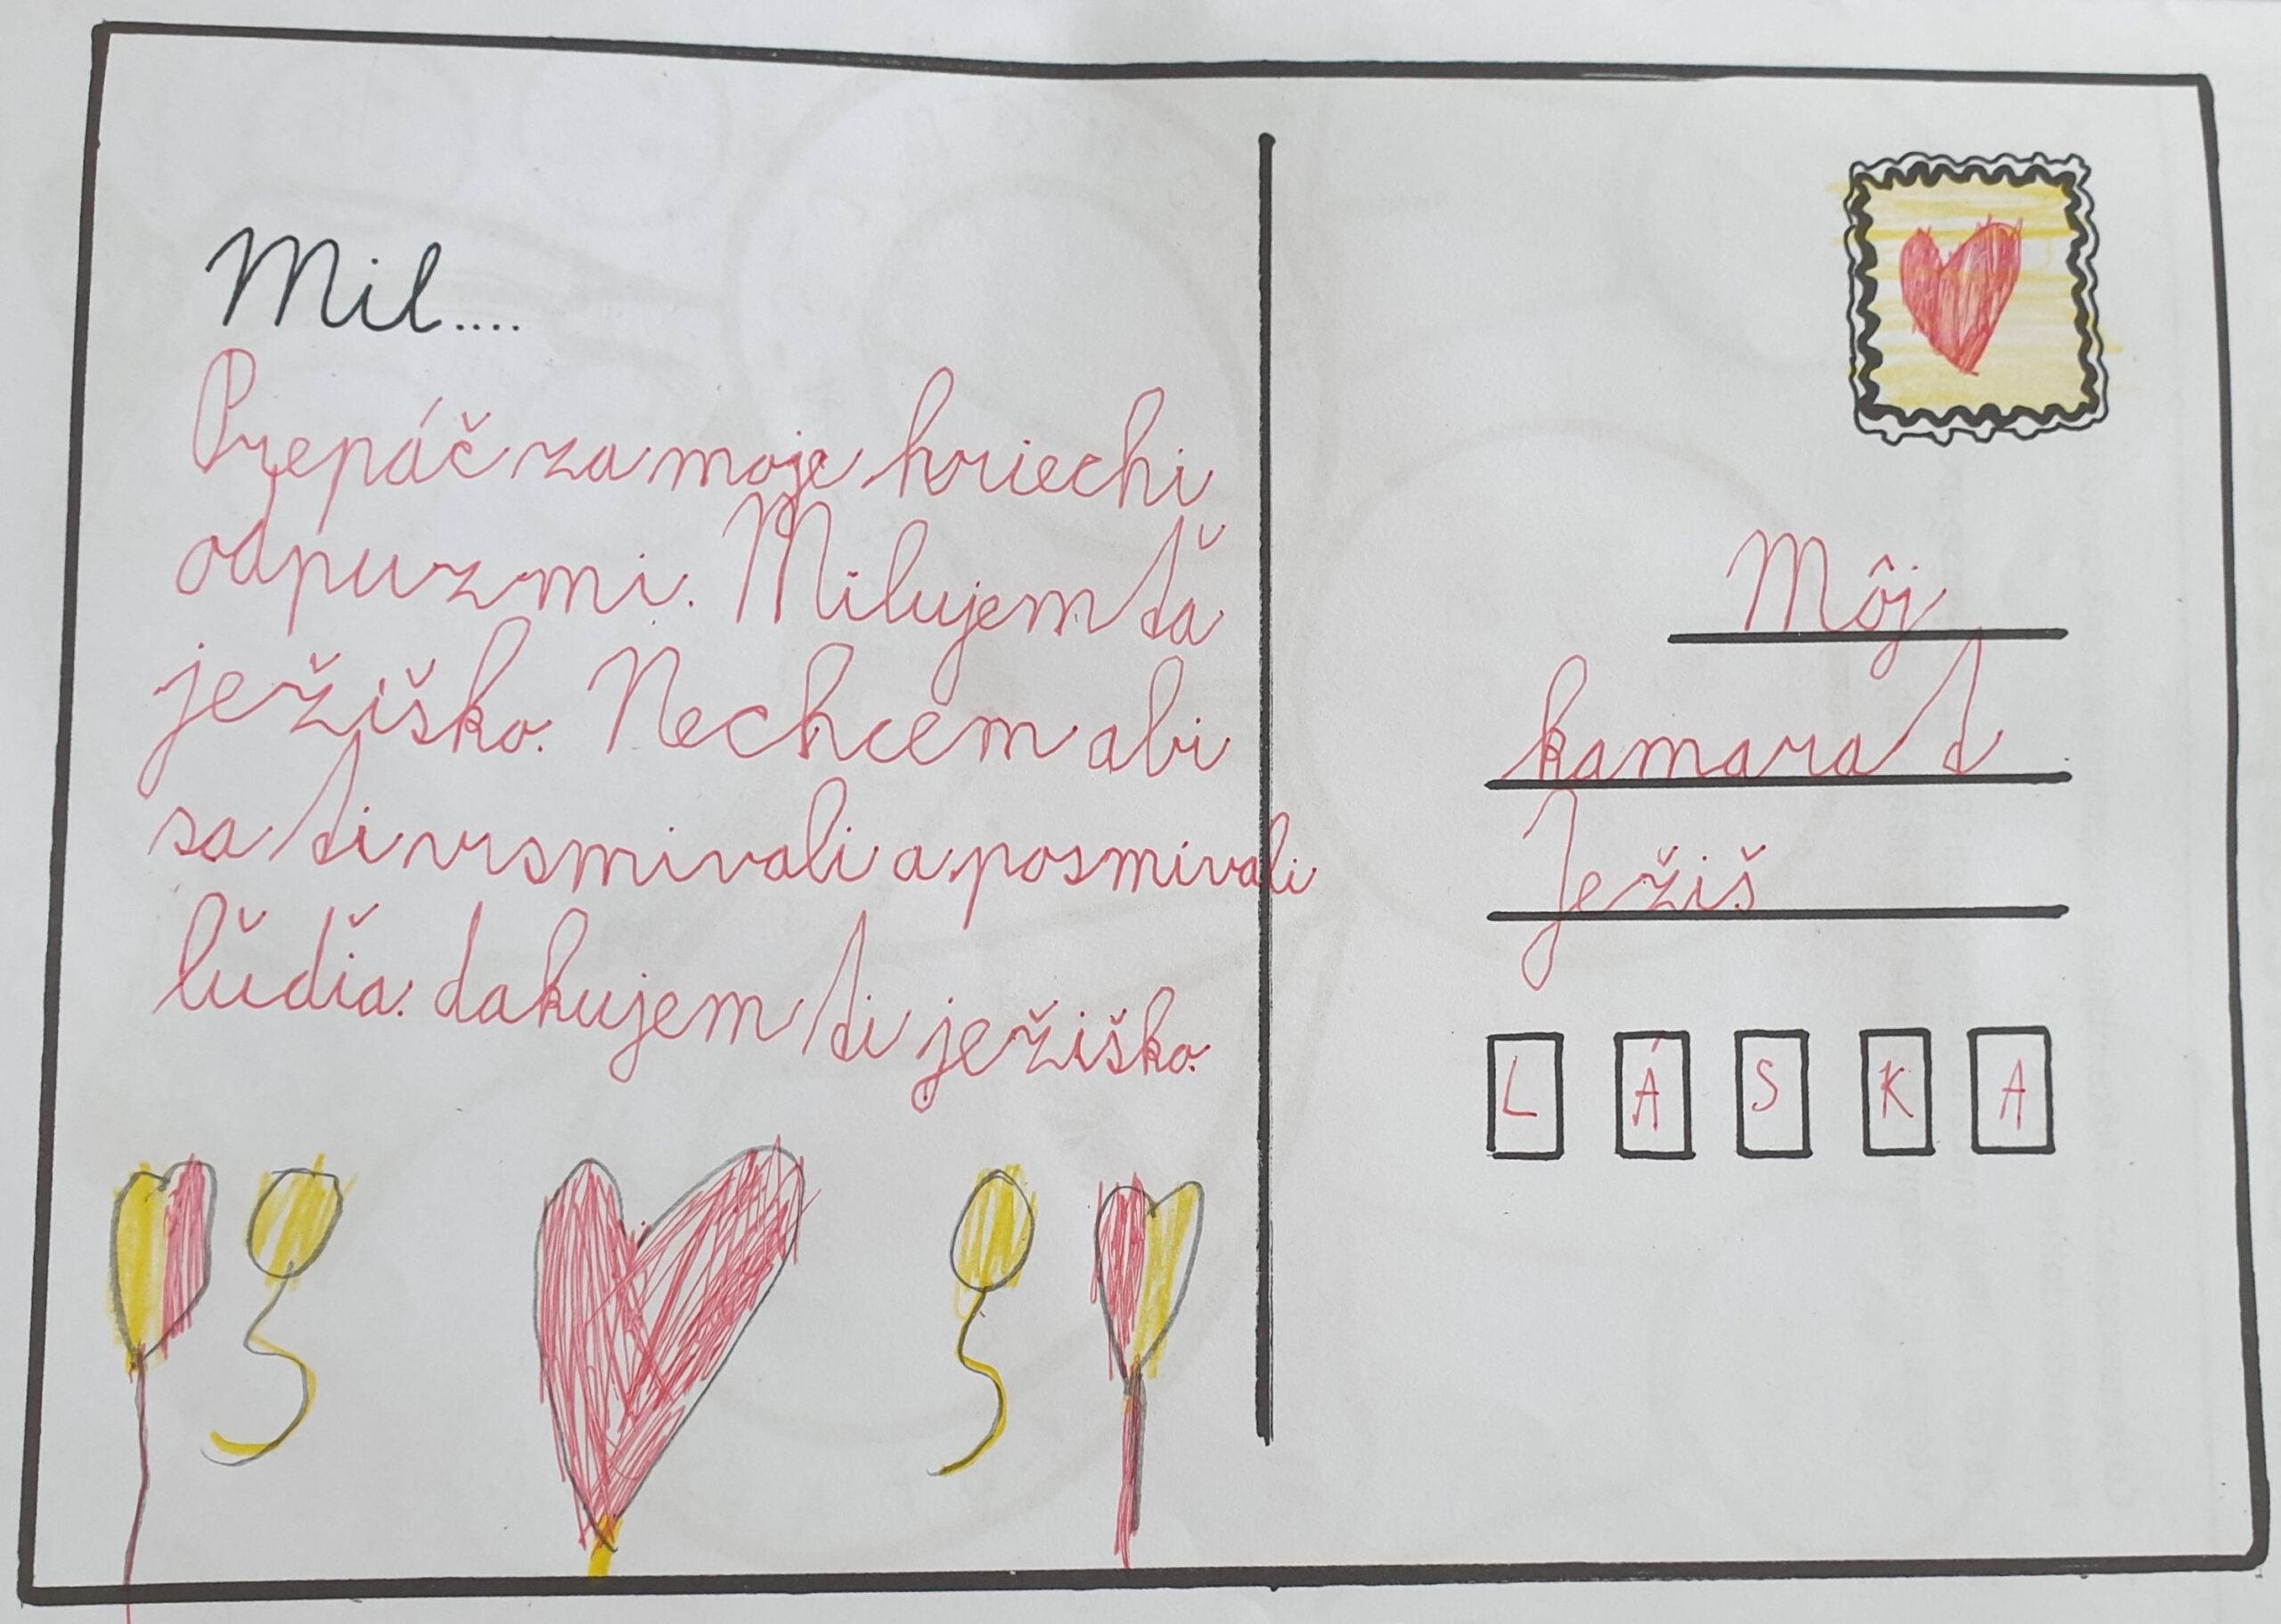 Mil....
Prepáč za moje hriechi
odpuz mi. Milujem ťa
ježiško. Nechcem abi
sa ti vrsmivali a posmívali
lǔďia. dakujem ti ježiško.
Môj
kamarad
Ježiš
L Á S K A